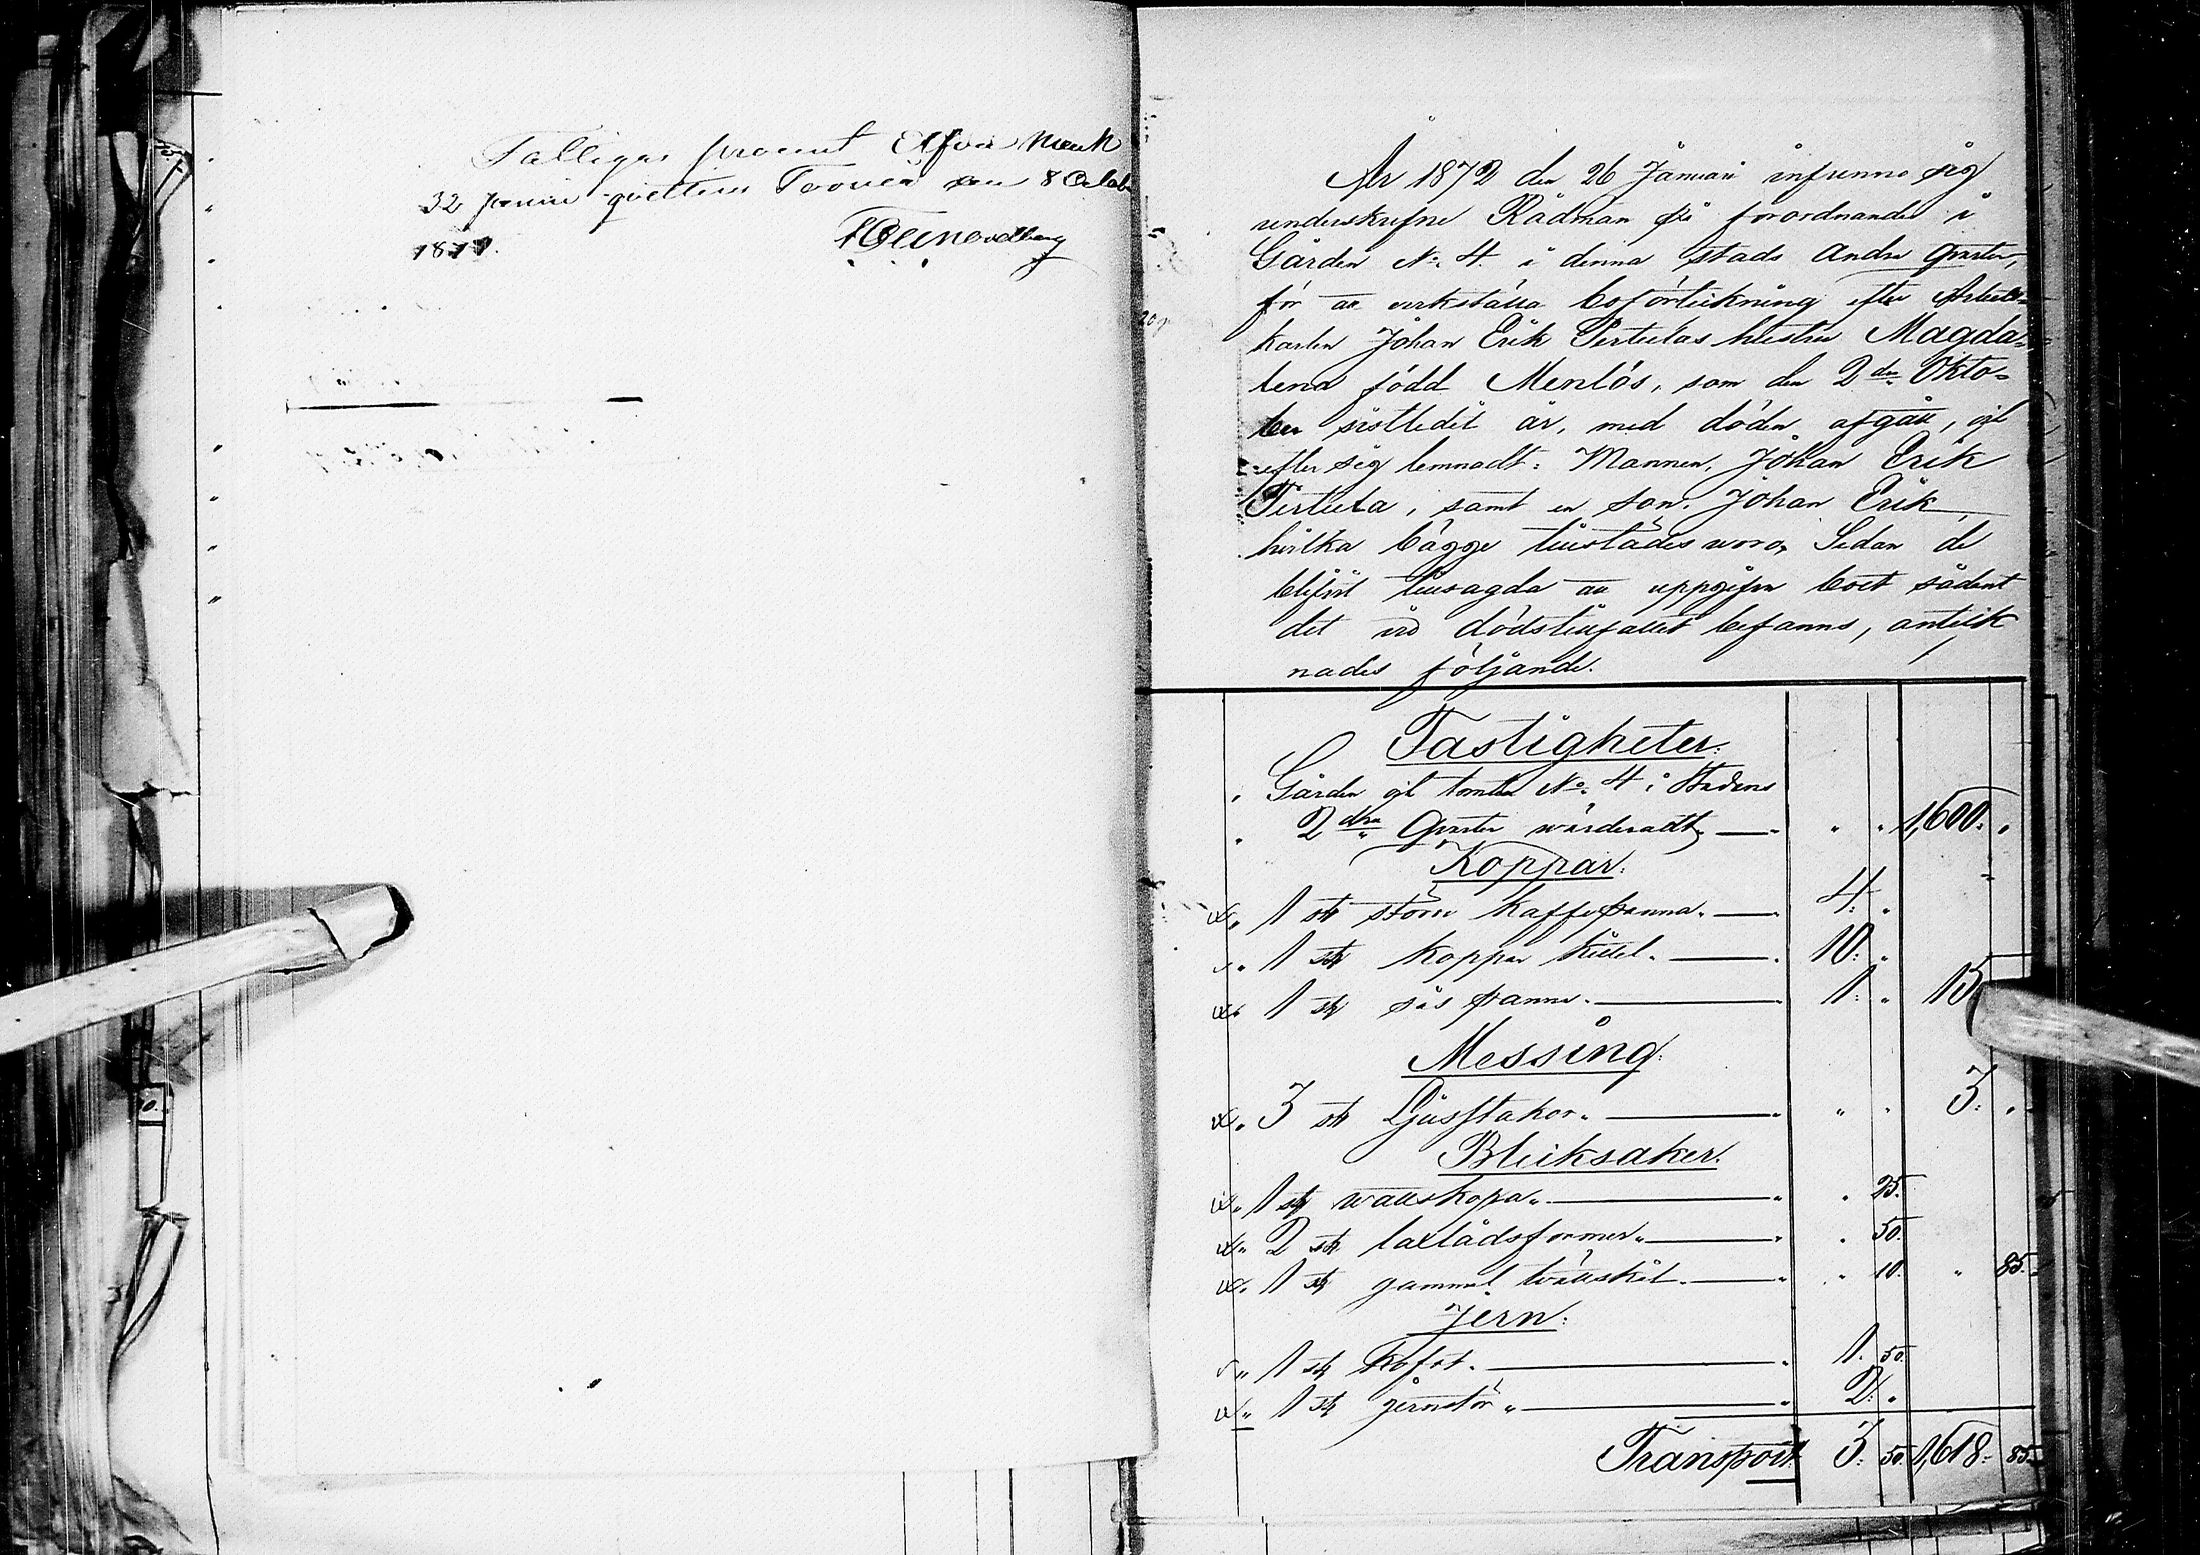 Fattigas procent Elfva Mark
32 penni qvitteras Torneå den 8 Octob
1871.
År 1872 den 26 Januari infunno sig
underskrifne Rådman på förordnande i
Gården No 4 i denna stads Andra qvarter,
för att verkställa boförteckning efter Arbets-
karlen Johan Erik Pertulas hustru Magda-
lena född Menlös, som den 2dra Okto-
ber sistledit år, med döden afgått, och
efter sig lemnadt: Mannen, Johan Erik
Pertula, samt en son, Johan Erik,
hvilka bägge tillstädes woro. Sedan de
blifvit tillsagda att uppgifva boet sådant
det vid dödstillfallet befanns, anteck
nades följande.
Fastigheter:
Gården och tomten No 4 i Stadens
2dra Qvarter värderadt " " 1,600: "
Koppar:
1 st större kaffepanna. 4: "
1 st koppar kittel. 10: "
1 st sås panna. 1: " 15
Messing:
3 st Ljusstakar. " " 3: "
Blecksaker.
1 st wattuskopa. " 25.
2 st laxlådsformer. " 50.
1 st gammal tvättskål. " 10. " 85.
Jern:
1 st kofot. 1. 50.
1 st jernstör 2: "
Transport 3: 50. 1,618: 85.